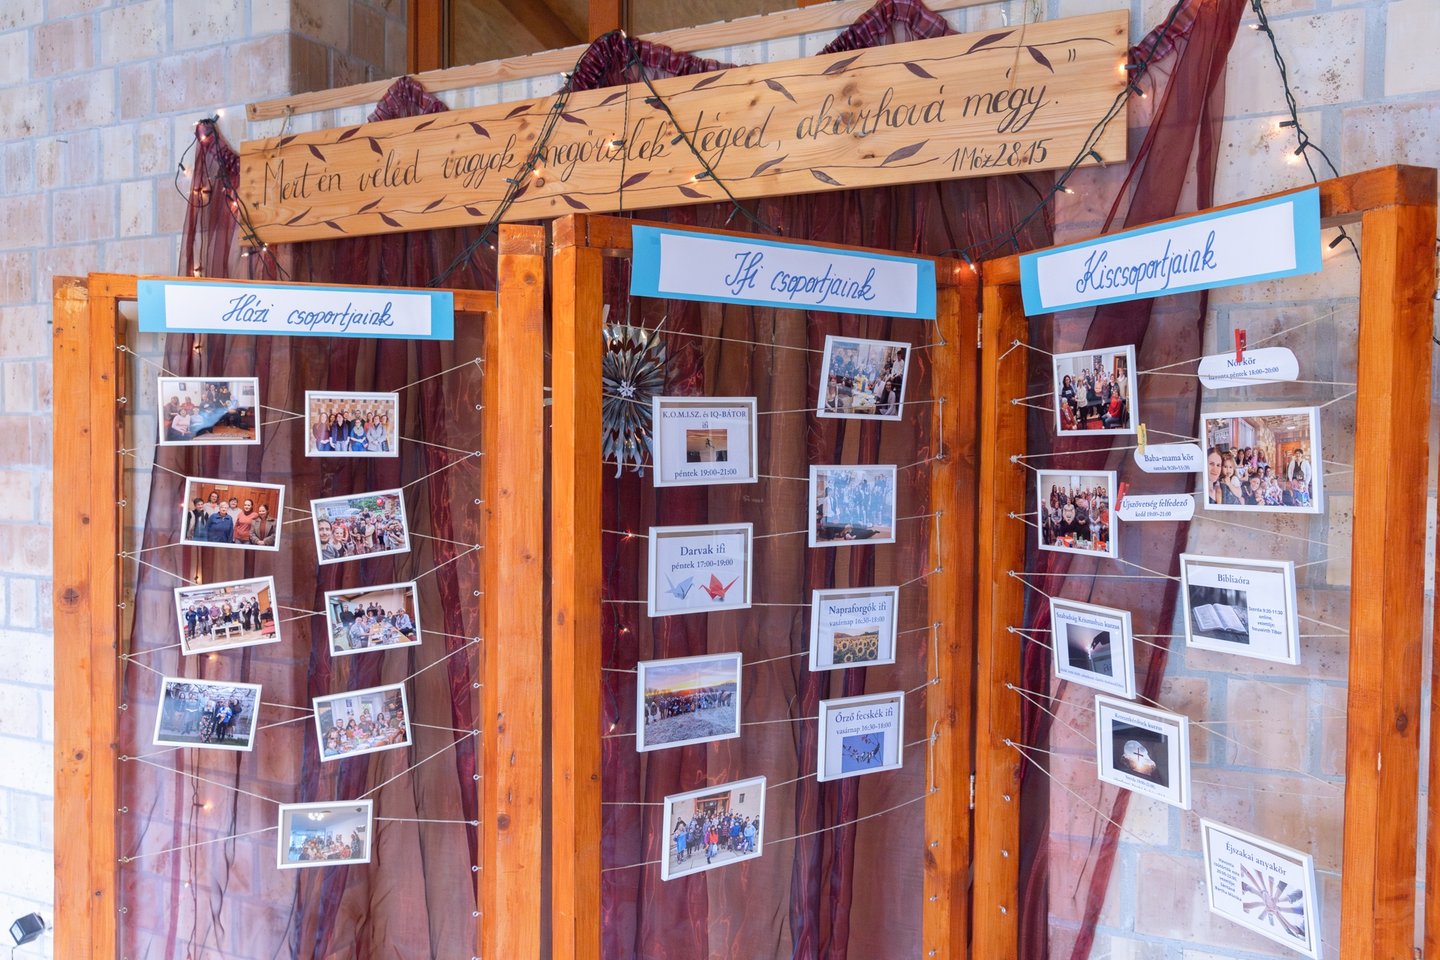 „Mert én veled vagyok, megőrizlek téged, akárhová mégy."
1Móz 28,15
Házi csoportjaink
Ifi csoportjaink
K.O.M.I.SZ. és IQ-BÁTOR
ifi
péntek 19:00-21:00
Darvak ifi
péntek 17:00-19:00
Napraforgók ifi
vasárnap 16:30-18:00
Őrző fecskék ifi
vasárnap 16:30-18:00
Kiscsoportjaink
Női kör
péntek 18:00-20:00
Baba-mama kör
szerda 9:30-11:30
Újszövetség felfedező
kedd 19:00-21:00
Bibliaóra
Szerda 9:30-11:30
online,
vezetője:
Tibor
Szabadság Krisztusban kurzus
kurzus
Éjszakai anyakör
Havonta